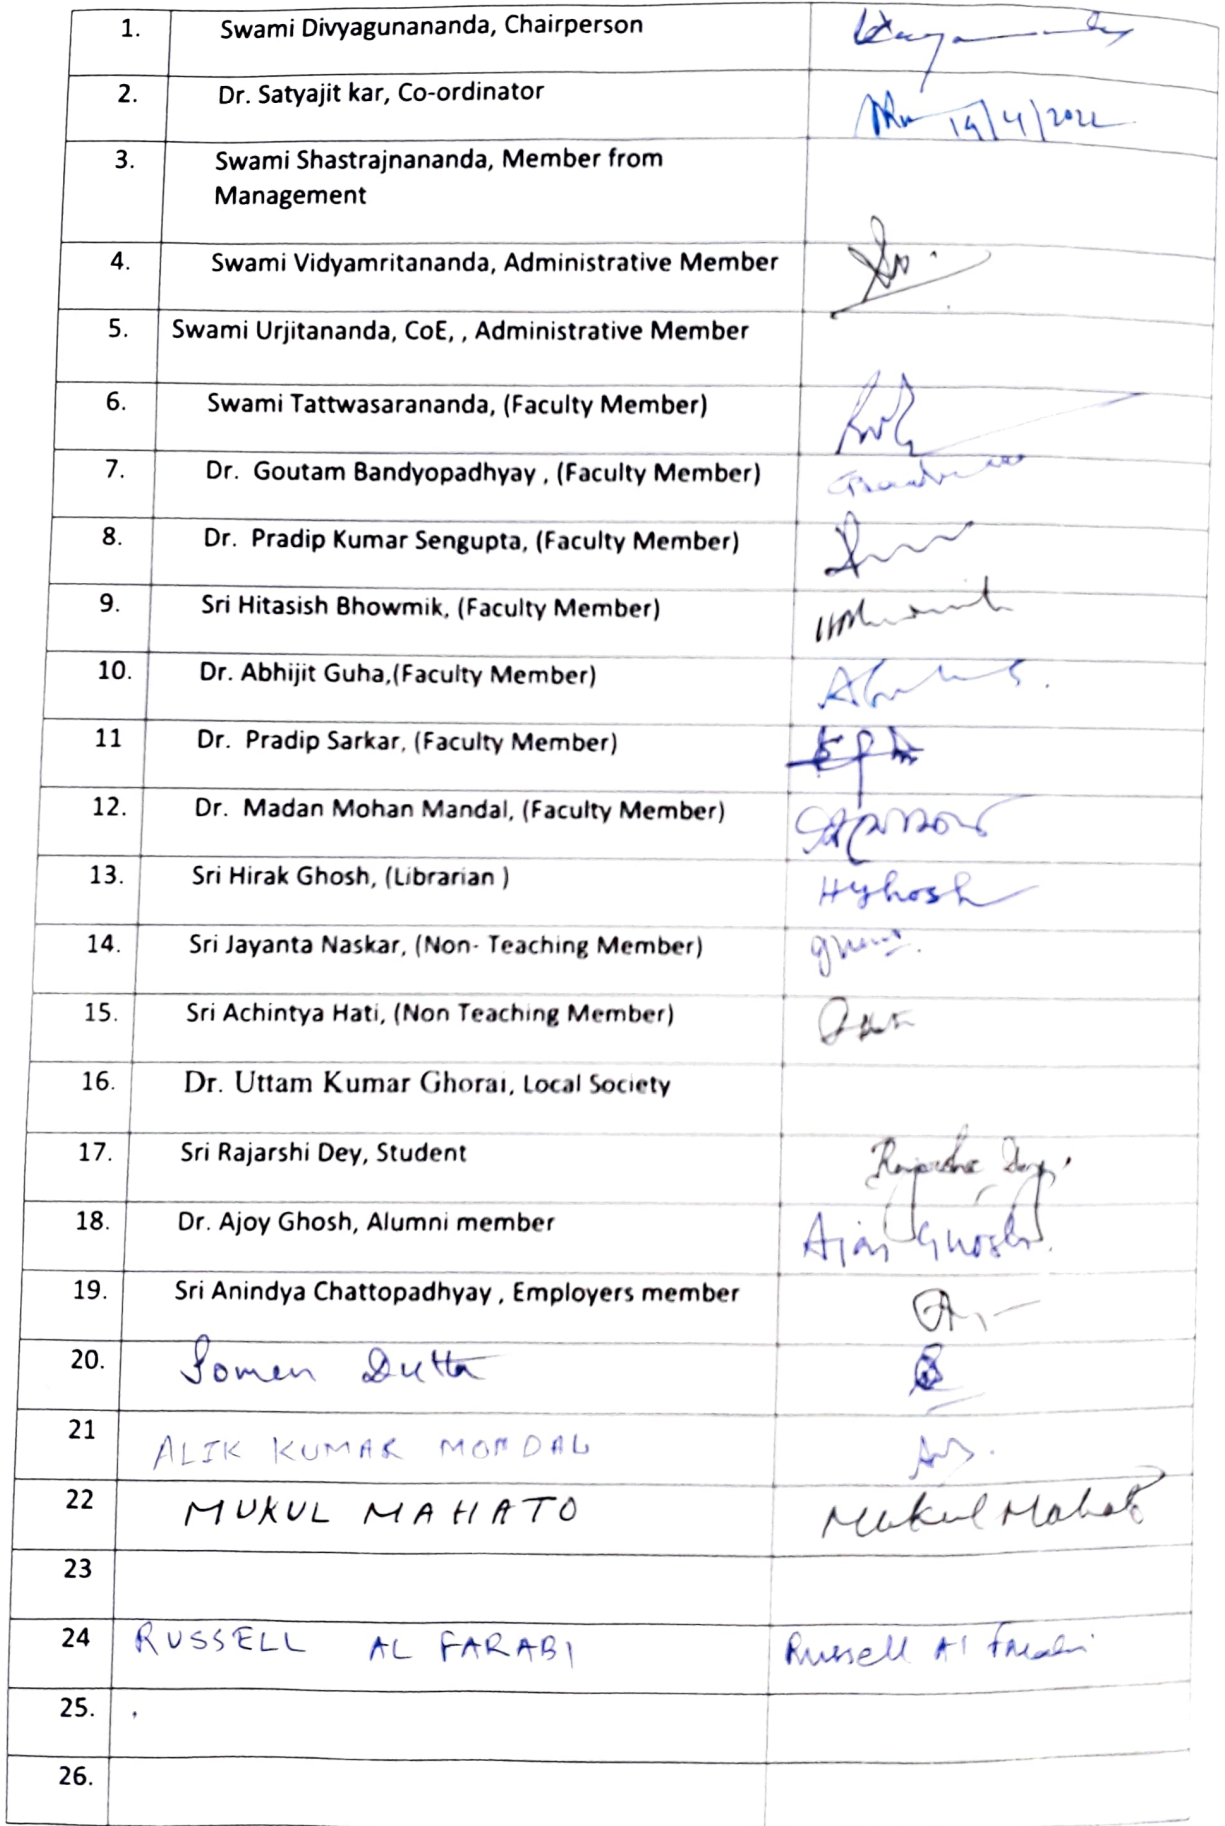 1. Swami Divyagunananda, Chairperson
2. Dr. Satyajit kar, Co-ordinator 19/4/2022
3. Swami Shastrajnananda, Member from
Management
4. Swami Vidyamritananda, Administrative Member
5. Swami Urjitananda, CoE, , Administrative Member
6. Swami Tattwasarananda, (Faculty Member)
7. Dr. Goutam Bandyopadhyay , (Faculty Member)
8. Dr. Pradip Kumar Sengupta, (Faculty Member)
9. Sri Hitasish Bhowmik, (Faculty Member)
10. Dr. Abhijit Guha,(Faculty Member)
11 Dr. Pradip Sarkar, (Faculty Member)
12. Dr. Madan Mohan Mandal, (Faculty Member)
13. Sri Hirak Ghosh, (Librarian ) HGhosh
14. Sri Jayanta Naskar, (Non- Teaching Member)
15. Sri Achintya Hati, (Non Teaching Member)
16. Dr. Uttam Kumar Ghorai, Local Society
17. Sri Rajarshi Dey, Student Rajarshi Dey.
18. Dr. Ajoy Ghosh, Alumni member Ajoy Ghosh.
19. Sri Anindya Chattopadhyay , Employers member
20. Somen Dutta
21 ALIK KUMAR MONDAL
22 MUKUL MAHATO Mukul Mahato
23
24 RUSSELL AL FARABI Russell Al Farabi
25.
26.